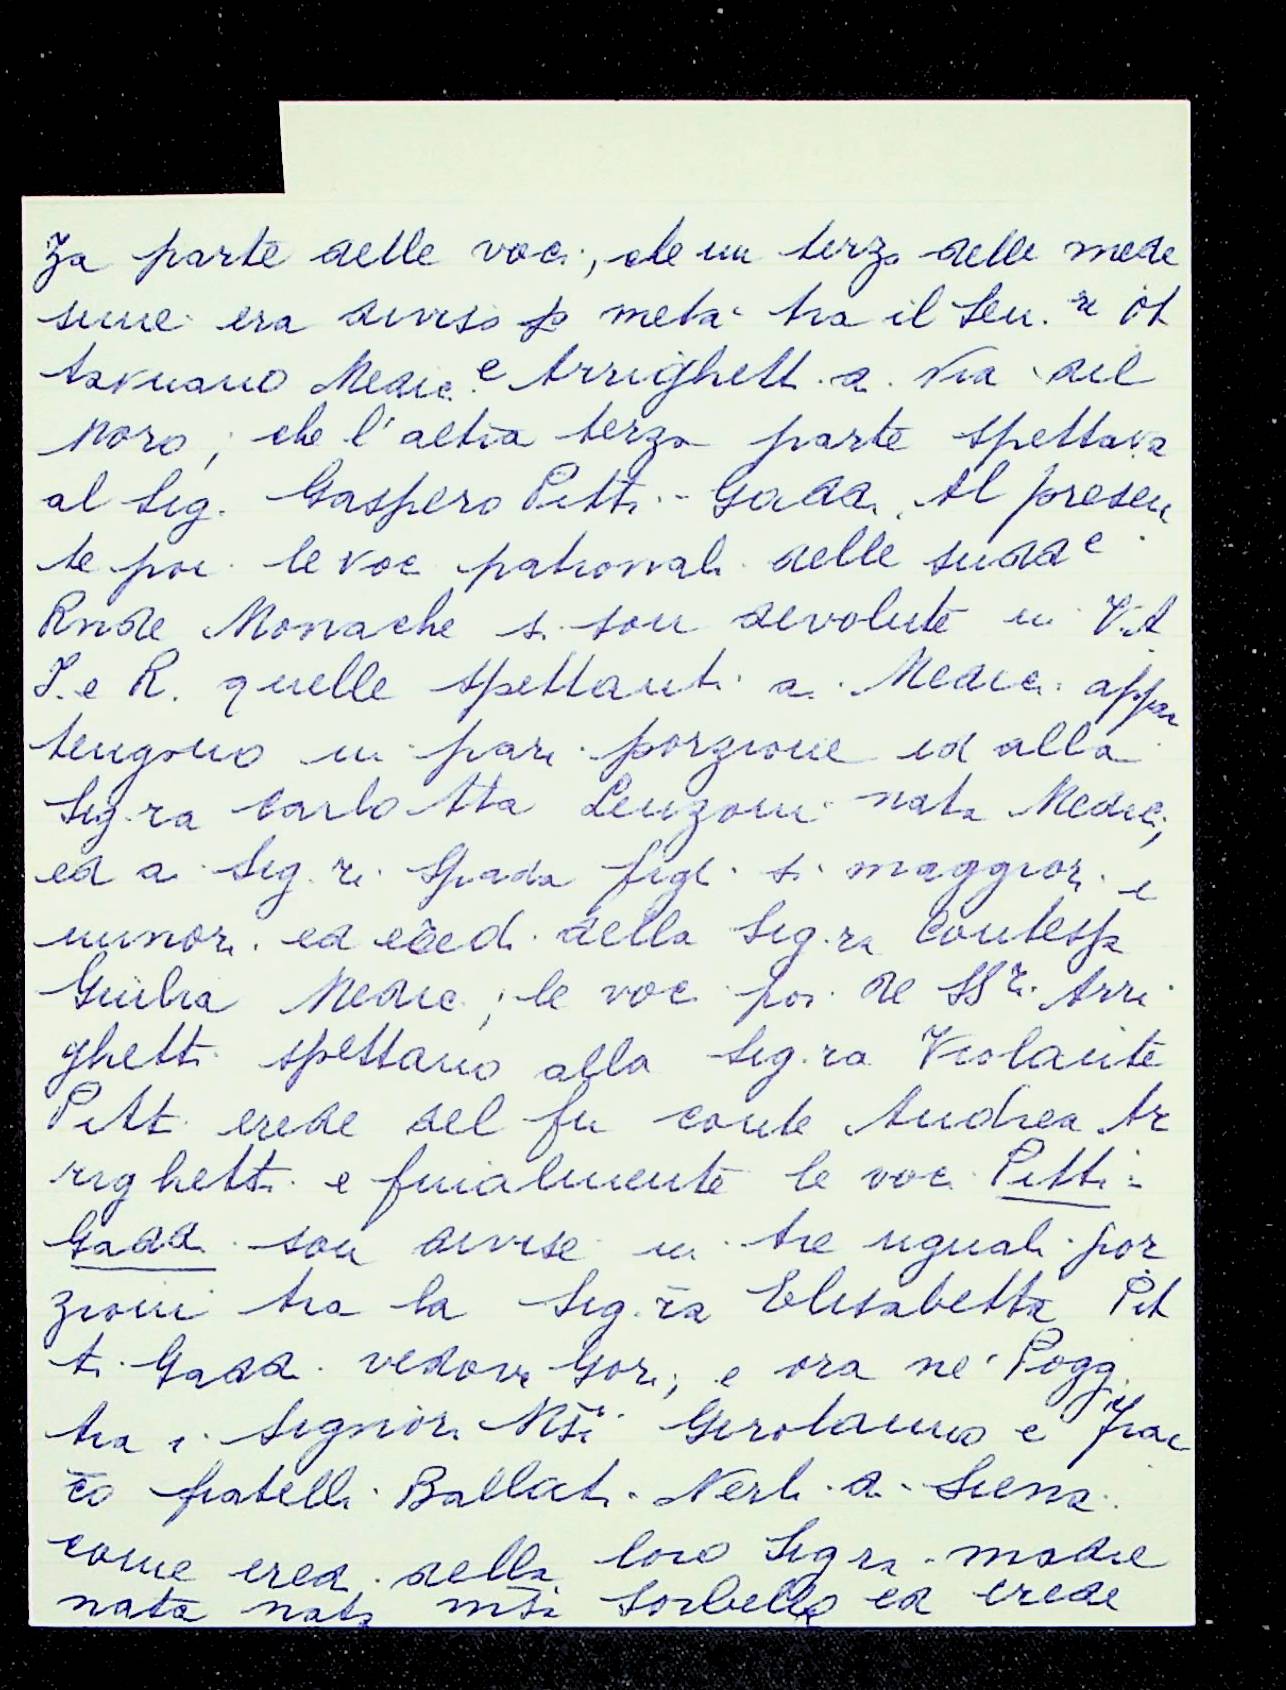 za parte delle voci, che un terzo delle mede
sime era diviso p metà tra il Sen.re Ot
taviano Medici e Arrighetti di Via del
Moro; che l'altra terza parte spettava
al Sig. Gaspero Pitti-Gaddi. Al presen
te poi le voci patronali delle sudde
Rnde Monache si son devolute in V.A
I. e R. quelle spettanti ai Medici appar
tengono in pari porzione ed alla
Sig.ra Carlotta Lenzoni nata Medici,
ed ai Sig.ri Spada figli sì maggiori e
minori ed eredi della Sig.ra Contessa
Giulia Medici; le voci poi de SSri Arri
ghetti spettano alla Sig.ra Violante
Pitti erede del fu conte Andrea Ar
righetti e finalmente le voci Pitti-
Gaddi son divise in tre uguali por
zioni tra la Sig.ra Elisabetta Pit
ti Gaddi vedova Gori, e ora ne' Poggi
tra i Signori Msi Girolamo e Frac
co fratelli Ballati Nerli di Siena
come eredi della loro Sigra madre
nata nata msa Sorbello ed erede